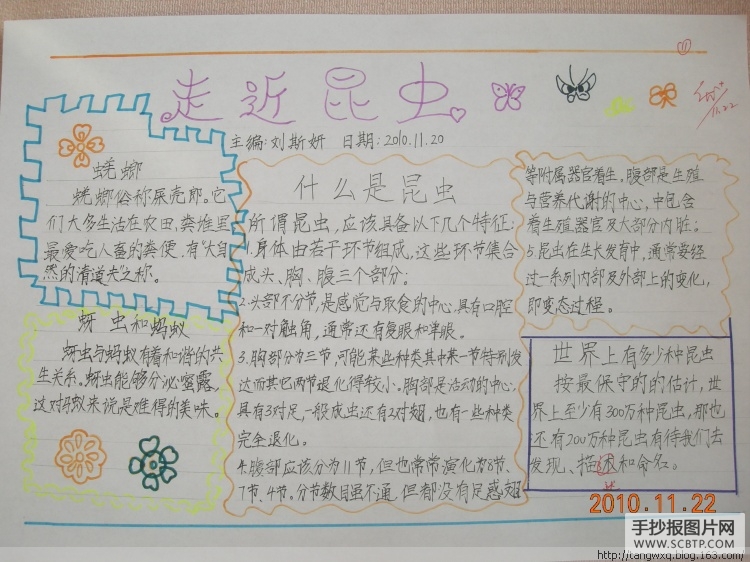 走近昆虫
主编:刘斯妍 日期:2010.11.20
蜣螂
蜣螂俗称屎壳郎。它
们大多生活在农田,粪堆里
最爱吃人畜的粪便,有“大自
然的清道夫”之称。
蚜虫和蚂蚁
蚜虫与蚂蚁有着和谐的共
生关系。蚜虫能够分泌蜜露,
这对蚂蚁来说是难得的美味。
什么是昆虫
所谓昆虫,应该具备以下几个特征:
1.身体由若干环节组成,这些环节集合
成头、胸、腹三个部分。
2.头部不分节,是感觉与取食的中心,具有口腔
和一对触角,通常还有复眼和单眼。
3.胸部分为三节,可能某些种类其中来一节特别发
达而其它两节退化得较小。胸部是活动的中心,
具有3对足,一般成虫还有2对翅,也有一些种类
完全退化。
4.腹部应该分为11节,但也常常演化为8节、
7节、4节。分节数目虽不通,但都没有足感翅
等附属器官着生,腹部是生殖
与营养代谢的中心,中包含
着生殖器官及大部分内脏;
5.昆虫在生长发育中,通常要经
过一系列内部及外部上的变化,
即变态过程。
世界上有多少种昆虫
按最保守的的估计,世
界上至少有300万种昆虫,那也
还有200万种昆虫有待我们去
发现、描述和命名。
11.22
2010.11.22
手抄报图片网
WWW.SCBTP.COM
http://tangwxq.blog.163.com/